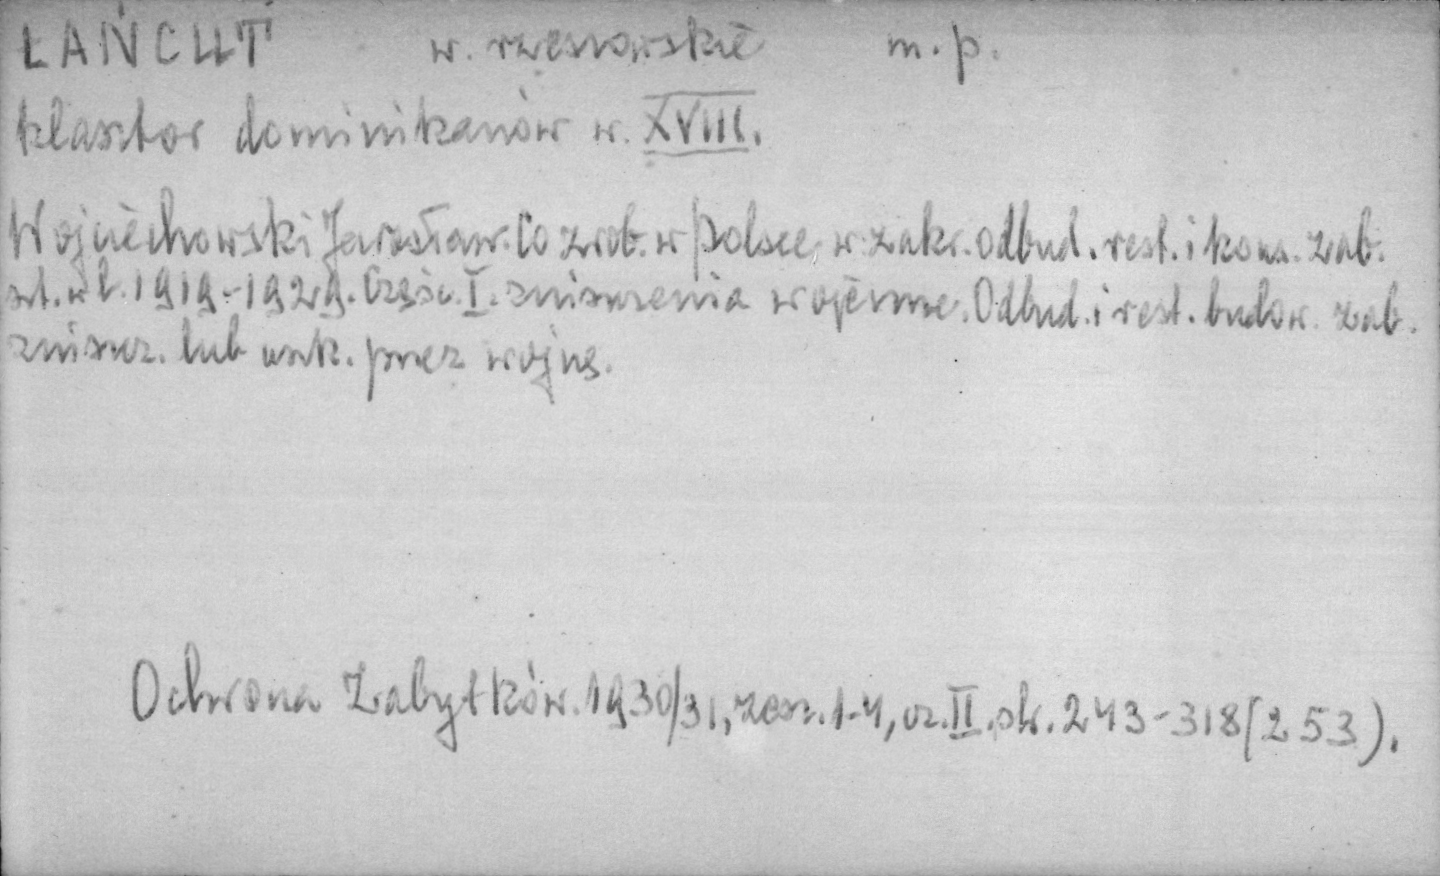 ŁAŃCUT w. rzeszowskie m. p.
klasztor dominikanów w. XVIII.
Wojciechowski Jarosław. Co zrob. w Polsce w zakr. odbud. rest. i kons. zab.
szt. w l. 1919-1929. Część. I. zniszczenia wojenne. Odbud. i rest. budow. zab.
zniszcz. lub uszk. przez wojnę.
Ochrona Zabytków. 1930/31, zesz. 1-4, cz. II. str. 243-318 (253).